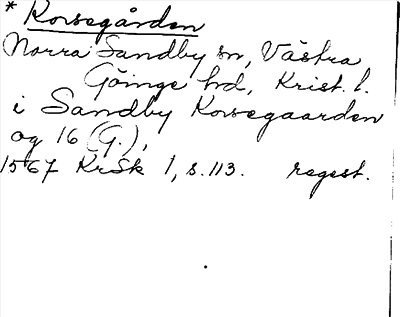 * Korsegården
Norra Sandby sn, Västra
Göinge hd, Krist. l.
i Sandby Korsegaarden
og 16 (G.),
1567 KrSk 1, s. 113. regest.